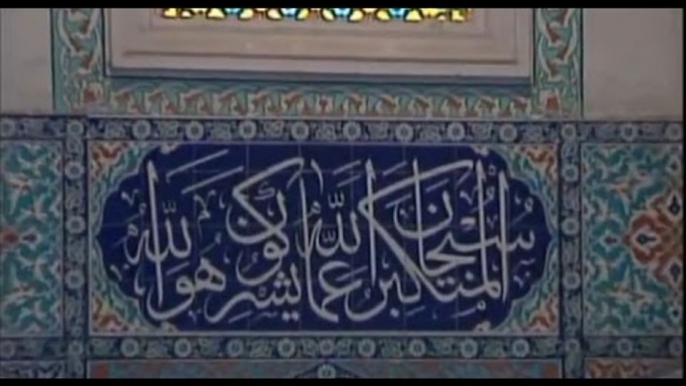 المتكبر سبحان الله عما يشركون هو الله